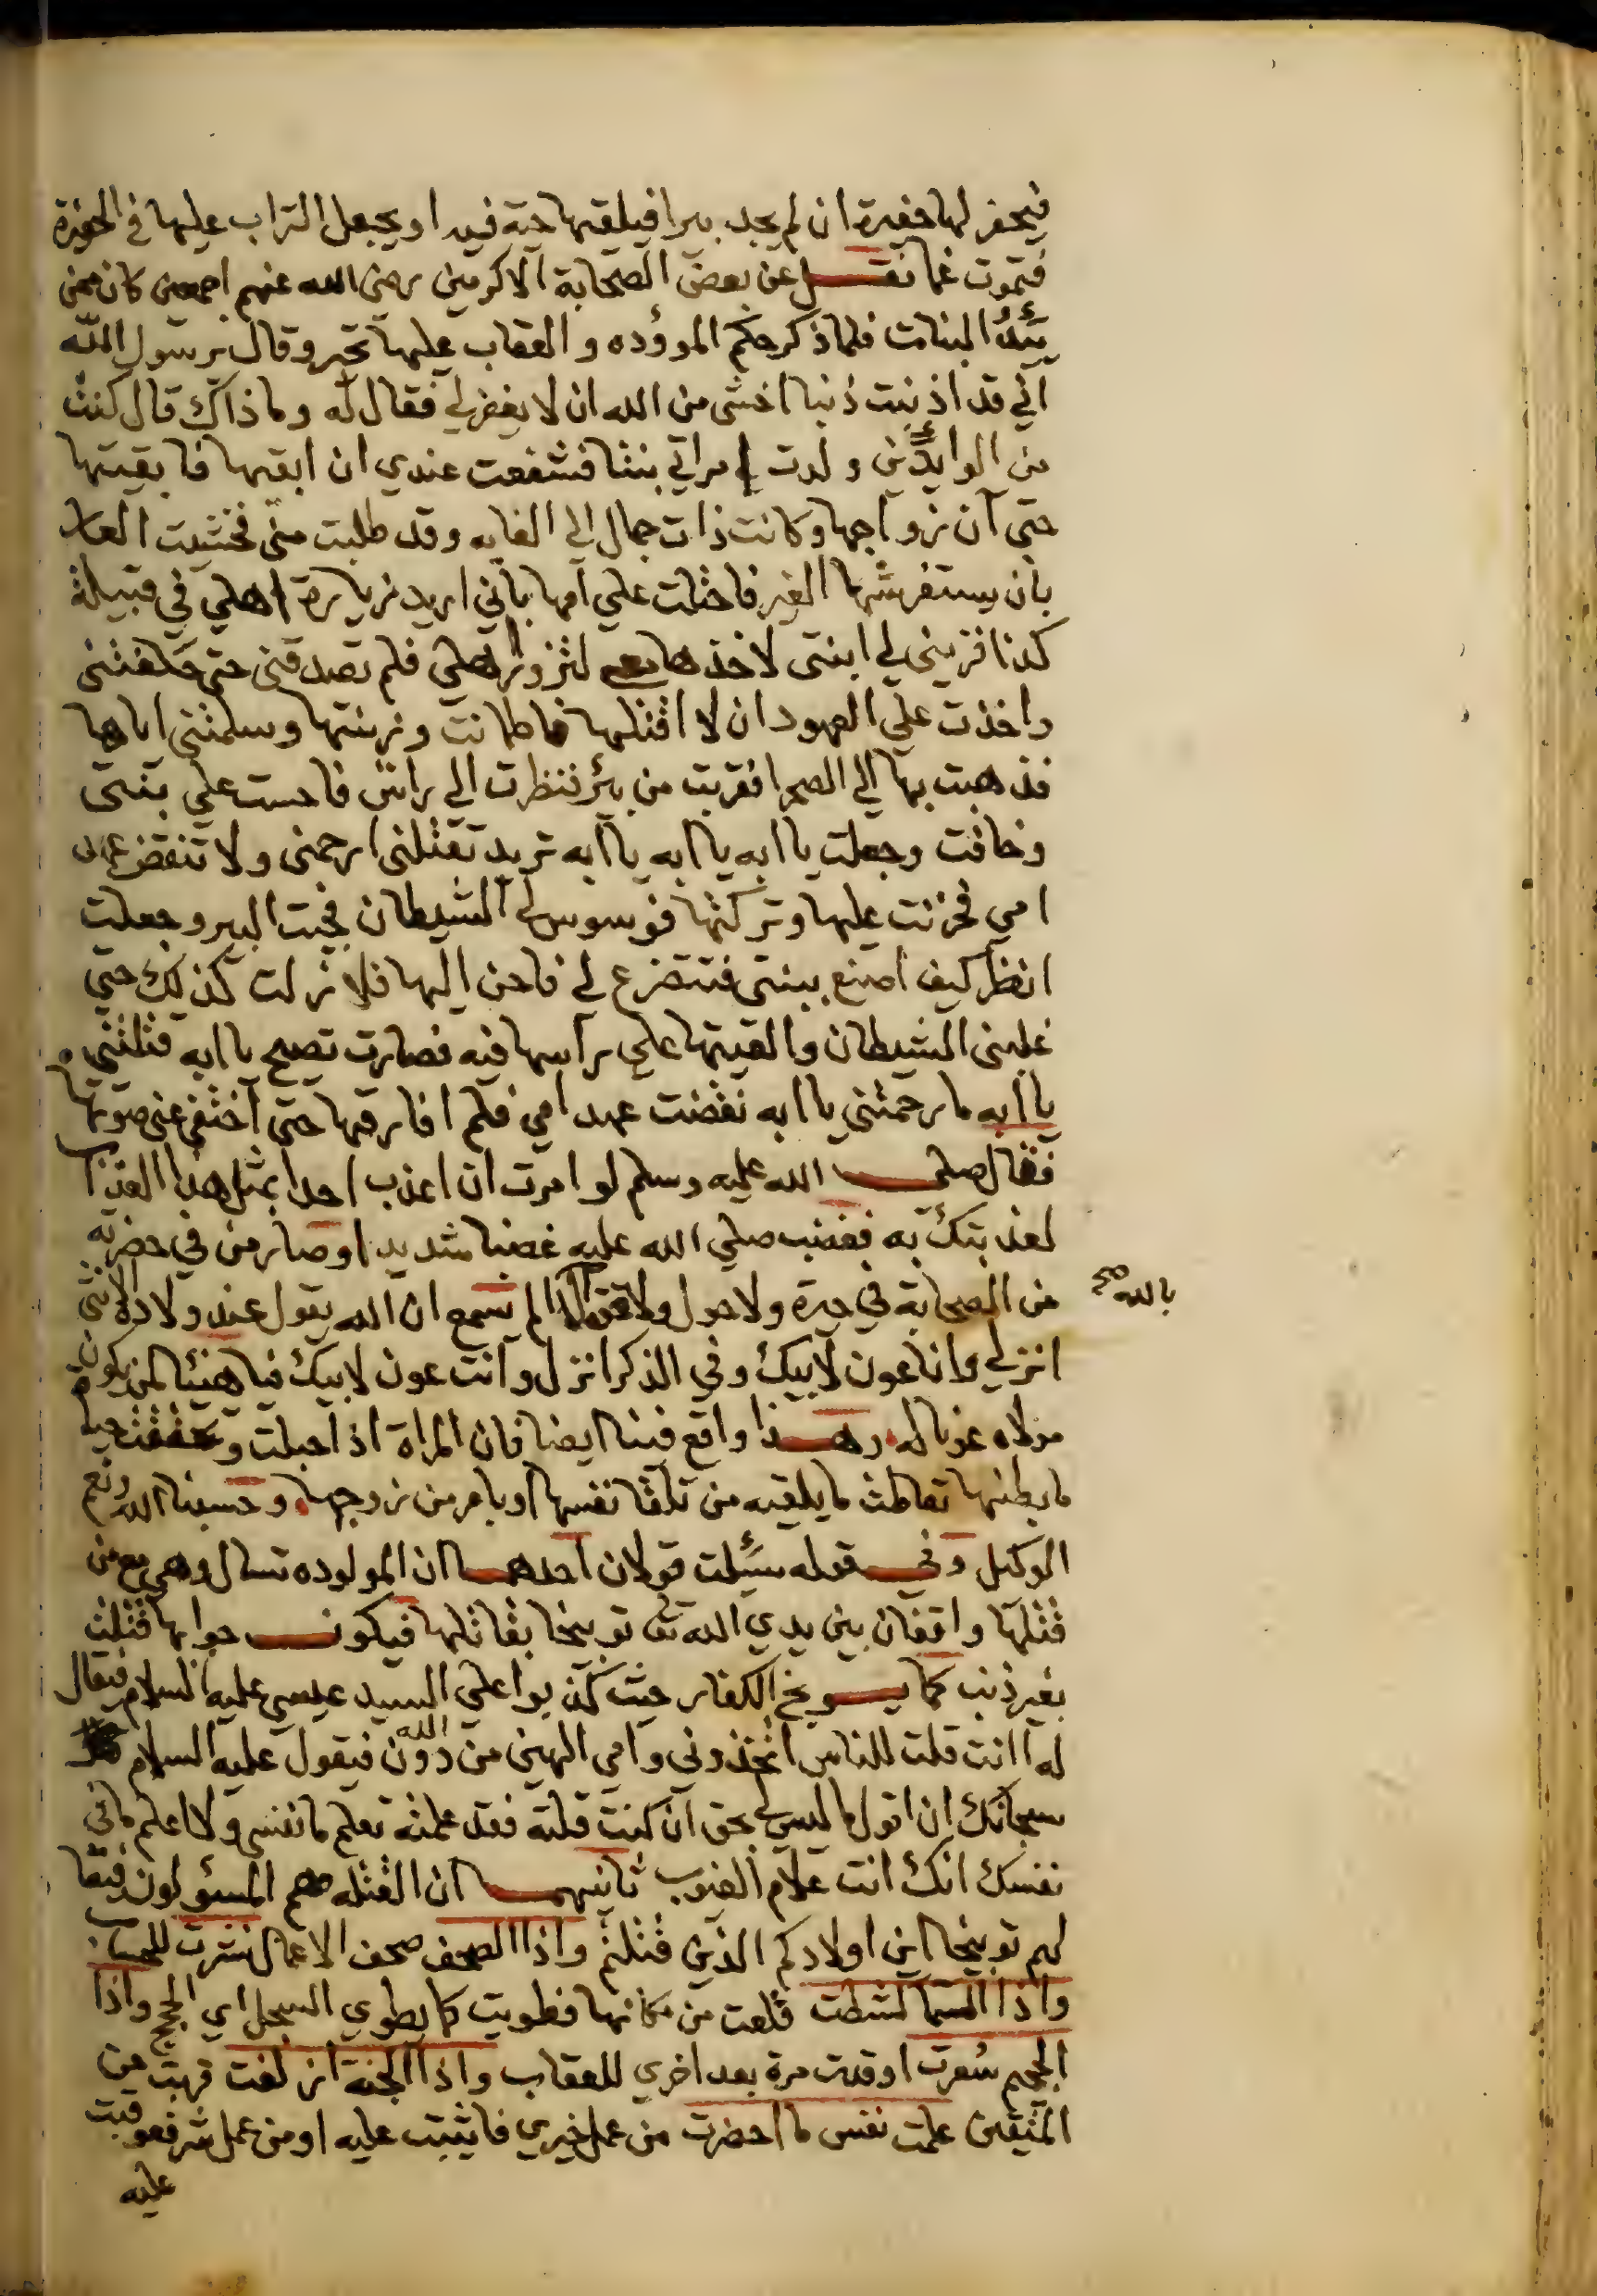 فيحفر لها حفيرة ان لم يجد بيرا فيلقيها حية فيه او يجعل التراب عليها في الحفرة
فتموت غما نقل عن بعض الصحابة الاكرمين رضي الله عنهم اجمعين كان ممن
يئد البنات فلما ذكر حكم الموؤده والعقاب عليها تحير وقال يرسول الله
اني قد اذنبت ذنبا اخشى من الله ان لا يغفر لي فقال له وما ذاك قال كنت
من الوايدين ولدت امراتي بنتا فشفعت عندي ان ابقها فابقيتها
حتى آن زواجها وكانت ذات جمال الى الغايه وقد طلبت منى فخشيت العار
بان يستفرشها الغير فاحتلت علي امها باني اريد زيارة اهلي في قبيلة
كذا فزيني لي ابنتى لاخذها معي لتزور اهلي فلم تصدقني حتى حلفتنى
واخذت علي العهود ان لا اقتلها فاطمانت وزينتها وسلمتني اياها
فذهبت بها الي الصحرا فقربت من بئر فنظرت الي راس فاحست علي بنتي
وخافت وجعلت يا ابه يا ابه يا ابه تريد تقتلنى ارحمنى ولا تنقض عهد
امي فحزنت عليها وتركتها فوسوس لي الشيطان فجيت البير وجعلت
انظر كيف اصنع ببنتي فتتضرع لي فاحن اليها فلا زلت كذلك حتي
غلبنى الشيطان والقيتها علي راسها فيه فصارت تصيح يا ابه قتلتني
يا ابه ما رحمتني يا ابه نقضت عهد امي فلم افارقها حتي اختفي عني صوتها
فقال صلي الله عليه وسلم لو امرت ان اعذب احدا بمثل هذا العذاب
لعذبتك به فغضب صلي الله عليه غضبا شديدا وصار من في حضرته
من الصحابة في حيرة ولا حول ولا قوة الا الم تسمع ان الله يقول عند ولادة الانثى
بالله صح
انزلي وانا عون لابيك وفي الذكر انزل وانت عون لابيك فيا هنيئا لمن يكون
مولاه عونا له وهذا واقع فينا ايضا فان المراة اذا حبلت وتحققت حياة
ما ببطنها تعاطت ما يلقيه من تلقا نفسها او بامر من زوجها وحسبنا الله ونعم
الوكيل وفي قوله سئلت قولان احدهما ان المولوده تسال وهي مع من
قتلها واقفان بين يدي الله تع توبيخا بقاتلها فيكون جوابها قتلت
بغير ذنب كما يوبخ الكفار حيث كذبوا علي السيد عيسي عليه السلام فيقال
له اانت قلت للناس اتخذوني وامي الهين من دون الله فيقول عليه السلام
سبحانك ان اقول ما ليس لي بحق ان كنت قلته فقد علمته تعلم ما نفسي ولا اعلم ما في
نفسك انك انت علام الغيوب ثانيهما ان القتله هم المسؤلون فيقا
لهم توبيخا اين اولادكم الذين قتلتم واذا الصحف صحف الاعمال نشرت للحساب
واذا السما كشطت قلعت من مكانها فطويت كما يطوي السجل اي الحجج واذا
الجحيم سعرت اوقدت مرة بعد اخري للعقاب واذا الجنة ازلفت قربت من
المتقين علمت نفس ما احضرت من عمل خيري فايثبت عليه او من عمل شر فعوقبت
عليه